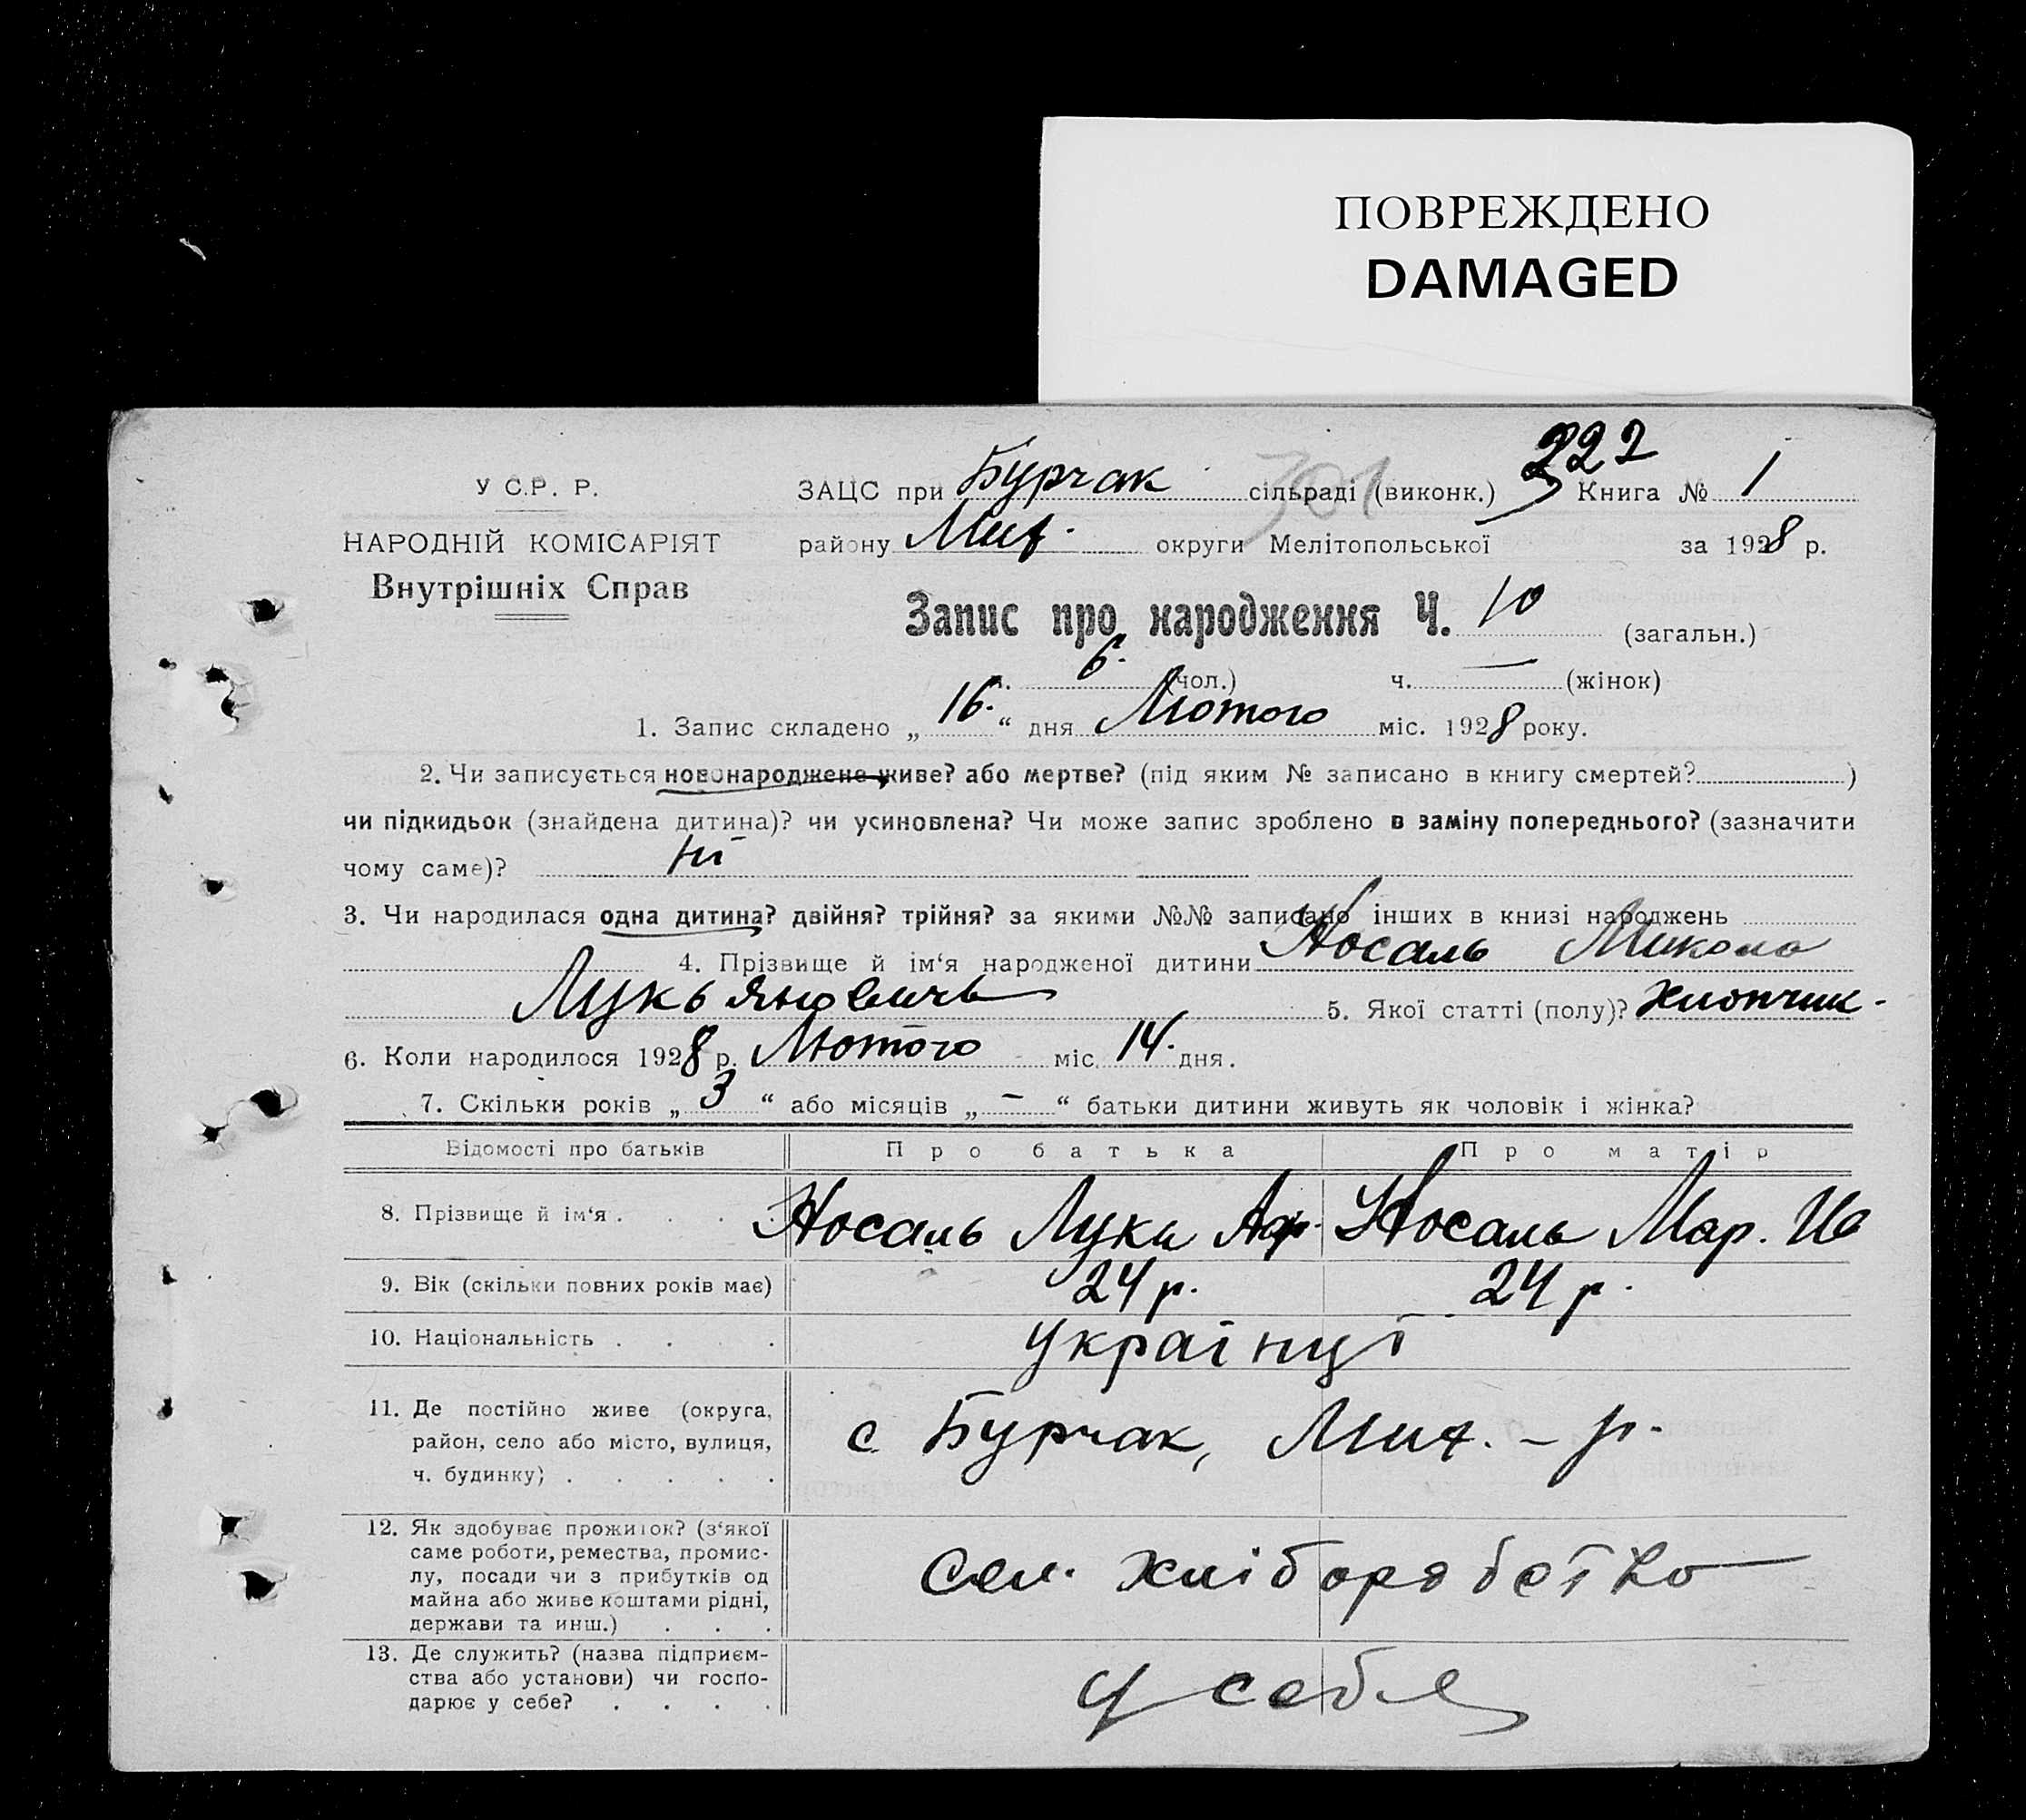 ПОВРЕЖДЕНО
DAMAGED
222
301
У С.Р. Р.
ЗАЦС при Бурчак сільраді (виконк.) Книга № 1
НАРОДНІЙ КОМІСАРІЯТ
району Мих. округи Мелітопольської за 1928 р.
Внутрішніх Справ
Запис про народження Ч. 10 (загальн.)
ч. 6. (чол.) ч. — (жінок)
1. Запис складено „ 16. “ дня Лютого міс. 1928 року.
2. Чи записується новонароджене живе? або мертве? (під яким № записано в книгу смертей? )
чи підкидьок (знайдена дитина)? чи усиновлена? Чи може запис зроблено в заміну попереднього? (зазначити
чому саме)? Ні
3. Чи народилася одна дитина? двійня? трійня? за якими №№ записано інших в книзі народжень
4. Прізвище й ім‘я народженої дитини Носаль Микола
Лукьяновичь 5. Якої статті (полу)? хлопчик.
6. Коли народилося 1928 р. Лютого міс. 14. дня.
7. Скільки років „ 3 “ або місяців „ — “ батьки дитини живуть як чоловік і жінка?
Відомості про батьків Про батька Про матір
8. Прізвище й ім‘я . . . . Носаль Лука Аф. Носаль Мар. Ив
9. Вік (скільки повних років має) 24 р. 24 р.
10. Національність . . . . Українці
11. Де постійно живе (округа,
район, село або місто, вулиця,
ч. будинку) . . . . .
с Бурчак, Мих. – р.
12. Як здобуває прожиток? (з‘якої
саме роботи, ремества, промис-
лу, посади чи з прибутків од
майна або живе коштами рідні,
держави та инш.) . . .
Сел. хліборобство
13. Де служить? (назва підприєм-
ства або установи) чи госпо-
дарює у себе? . . . .
у себе